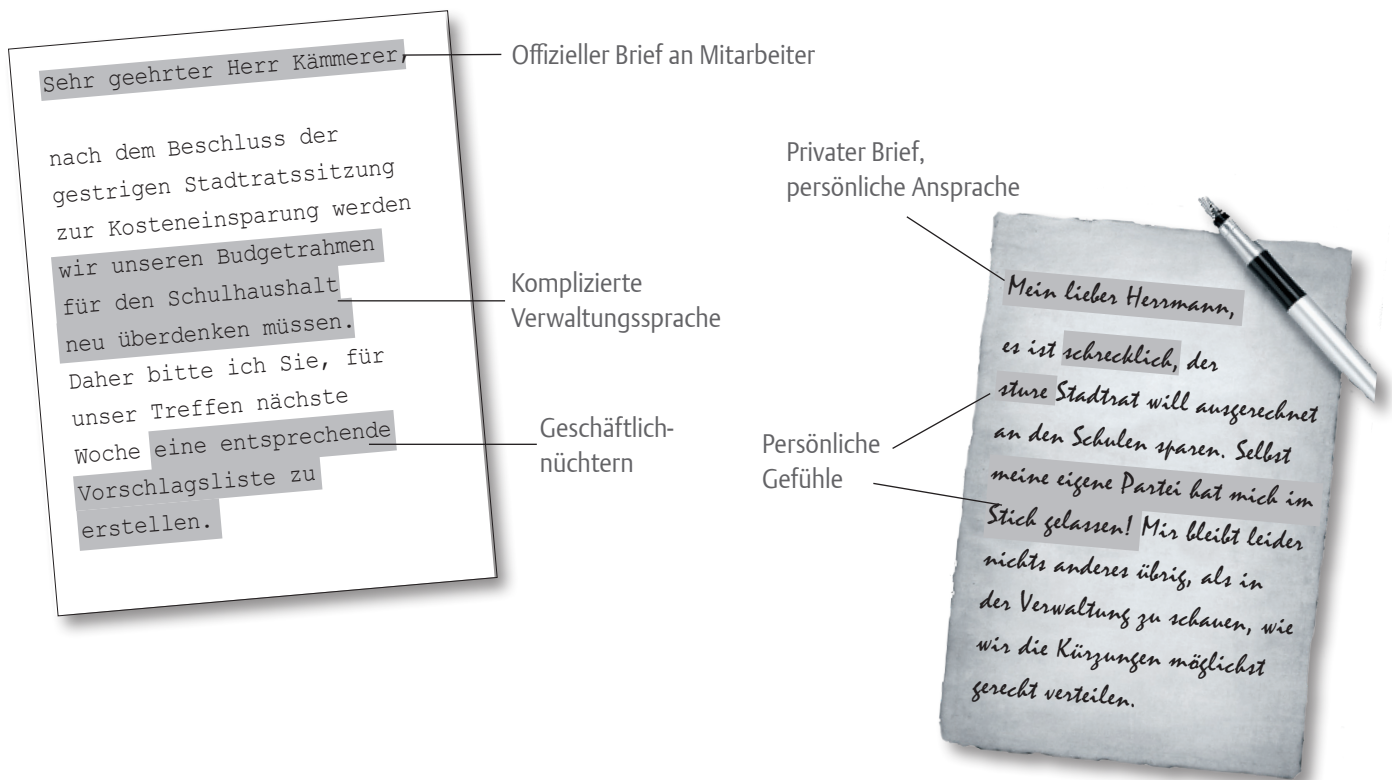 Sehr geehrter Herr Kämmerer,
nach dem Beschluss der
gestrigen Stadtratssitzung
zur Kosteneinsparung werden
wir unseren Budgetrahmen
für den Schulhaushalt
neu überdenken müssen.
Daher bitte ich Sie, für
unser Treffen nächste
Woche eine entsprechende
Vorschlagsliste zu
erstellen.
Offizieller Brief an Mitarbeiter
Komplizierte
Verwaltungssprache
Geschäftlich-
nüchtern
Privater Brief,
persönliche Ansprache
Persönliche
Gefühle
Mein lieber Herrmann,
es ist schrecklich, der
sture Stadtrat will ausgerechnet
an den Schulen sparen. Selbst
meine eigene Partei hat mich im
Stich gelassen! Mir bleibt leider
nichts anderes übrig, als in
der Verwaltung zu schauen, wie
wir die Kürzungen möglichst
gerecht verteilen.